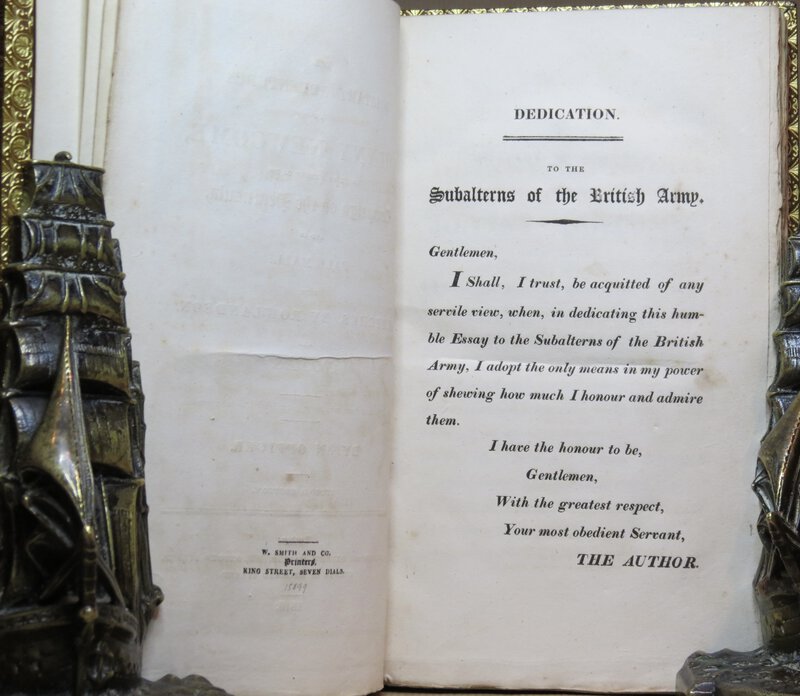 W. SMITH AND CO.
Printers,
KING STREET, SEVEN DIALS.
DEDICATION.
TO THE
Subalterns of the British Army.
Gentlemen,
I Shall, I trust, be acquitted of any
servile view, when, in dedicating this hum-
ble Essay to the Subalterns of the British
Army, I adopt the only means in my power
of shewing how much I honour and admire
them.
I have the honour to be,
Gentlemen,
With the greatest respect,
Your most obedient Servant,
THE AUTHOR.